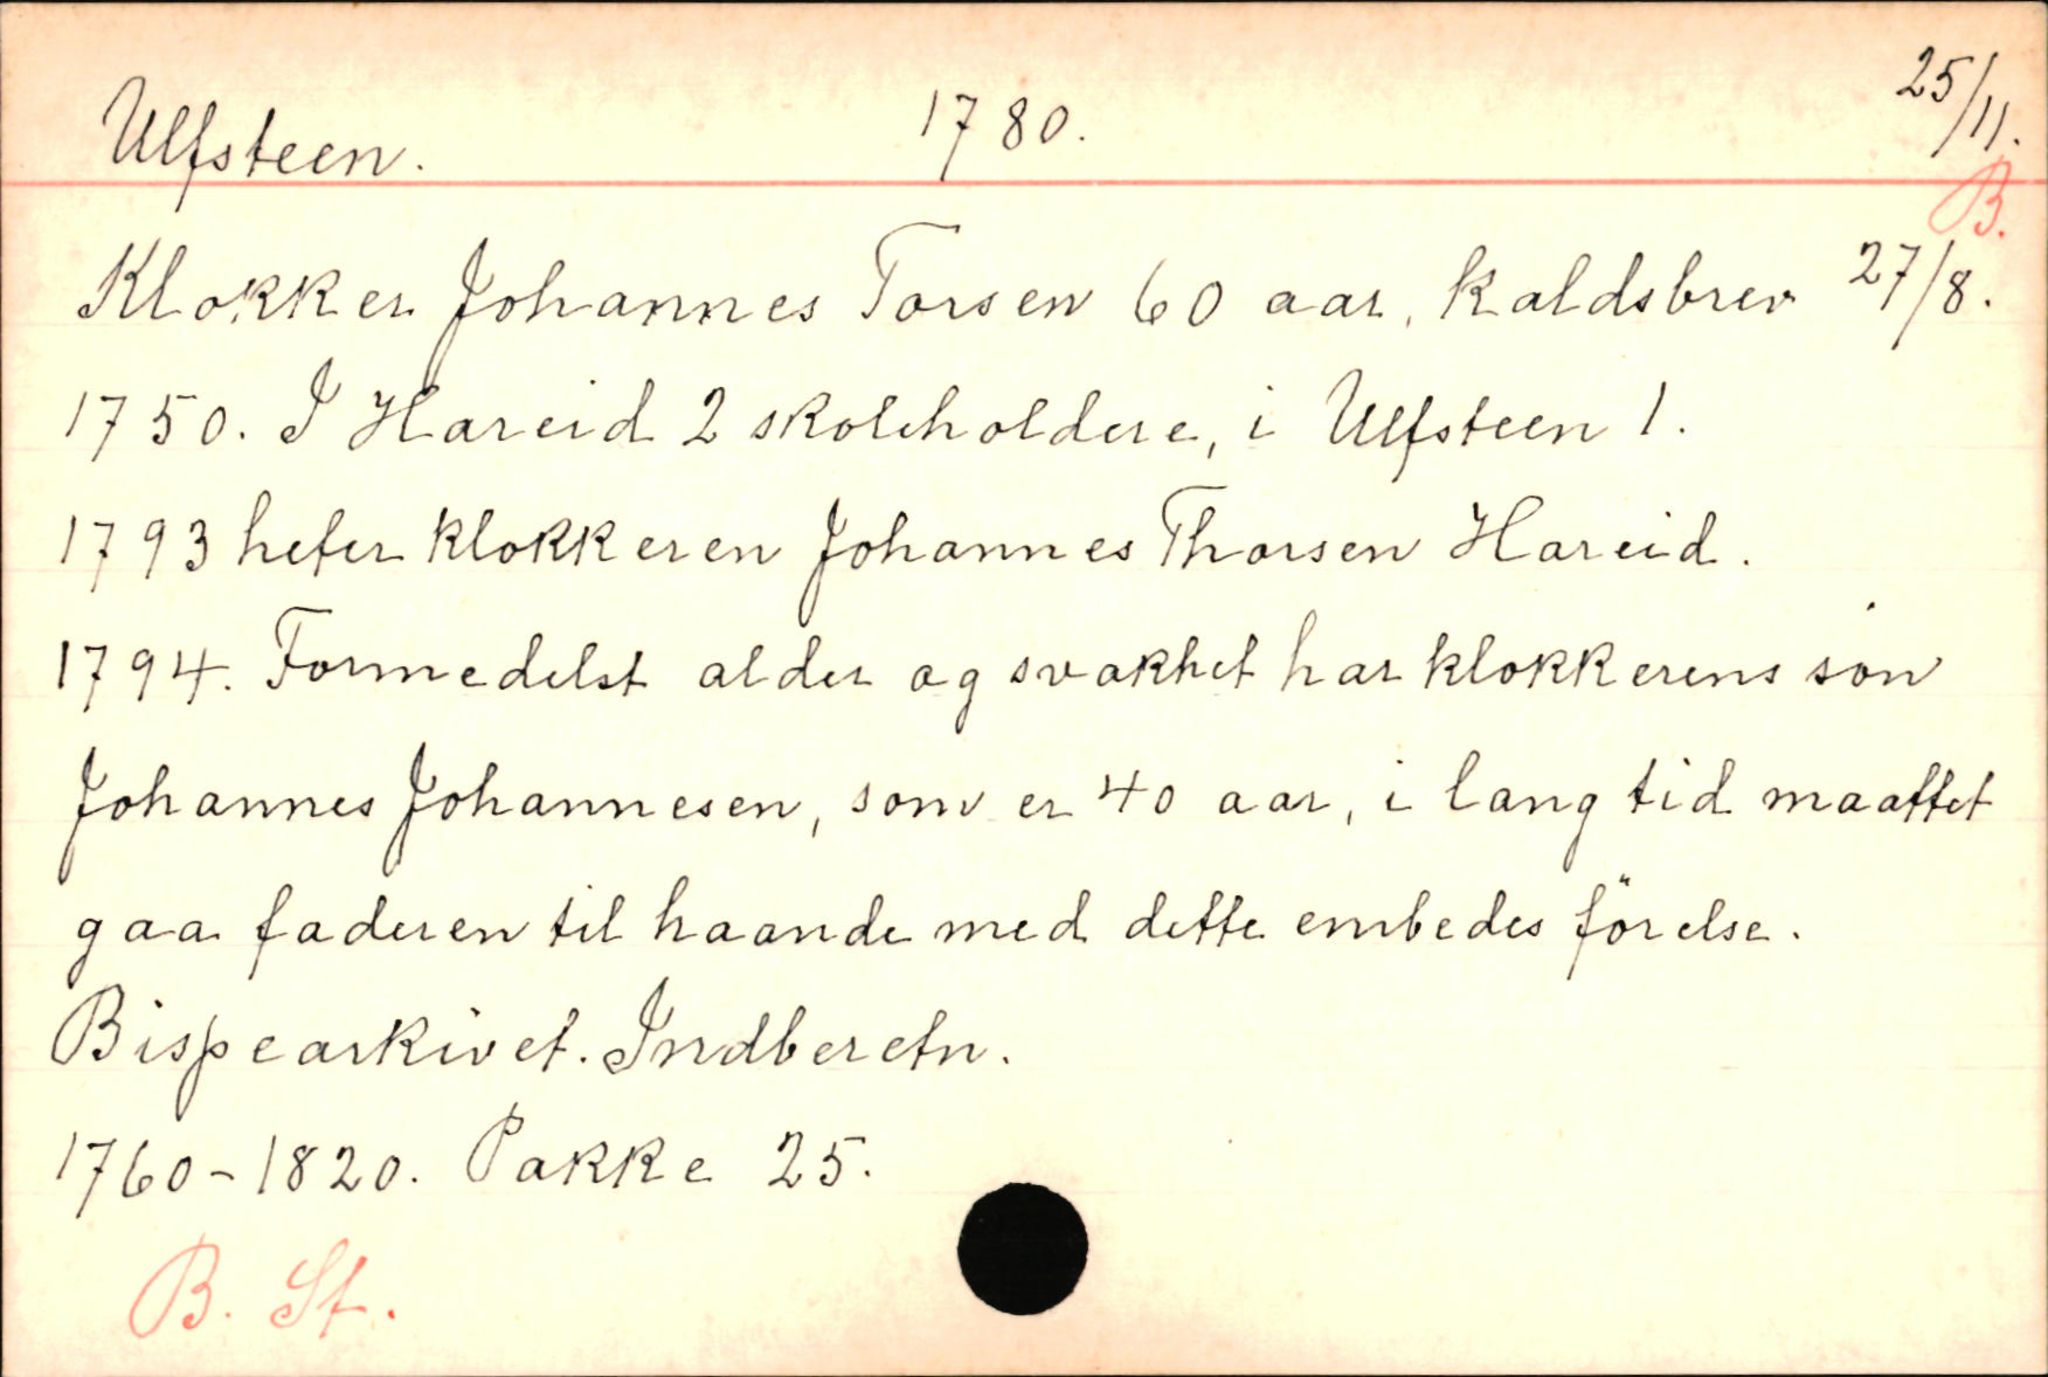 Ulfsteen. 1780. 25/11.
B.
Klokker Johannes Torsen 60 aar, kaldsbrev 27/8.
1750. I Hareid 2 skoleholdere, i Ulfsteen 1.
1793 heter klokkeren Johannes Thorsen Hareid.
1794. Formedelst alder og svakhet har klokkerens sön
Johannes Johannesen, som er 40 aar, i lang tid maattet
gaa faderen til haande med dette embedes förelse.
Bispearkivet. Indberetn.
1760-1820. Pakke 25.
B. St.